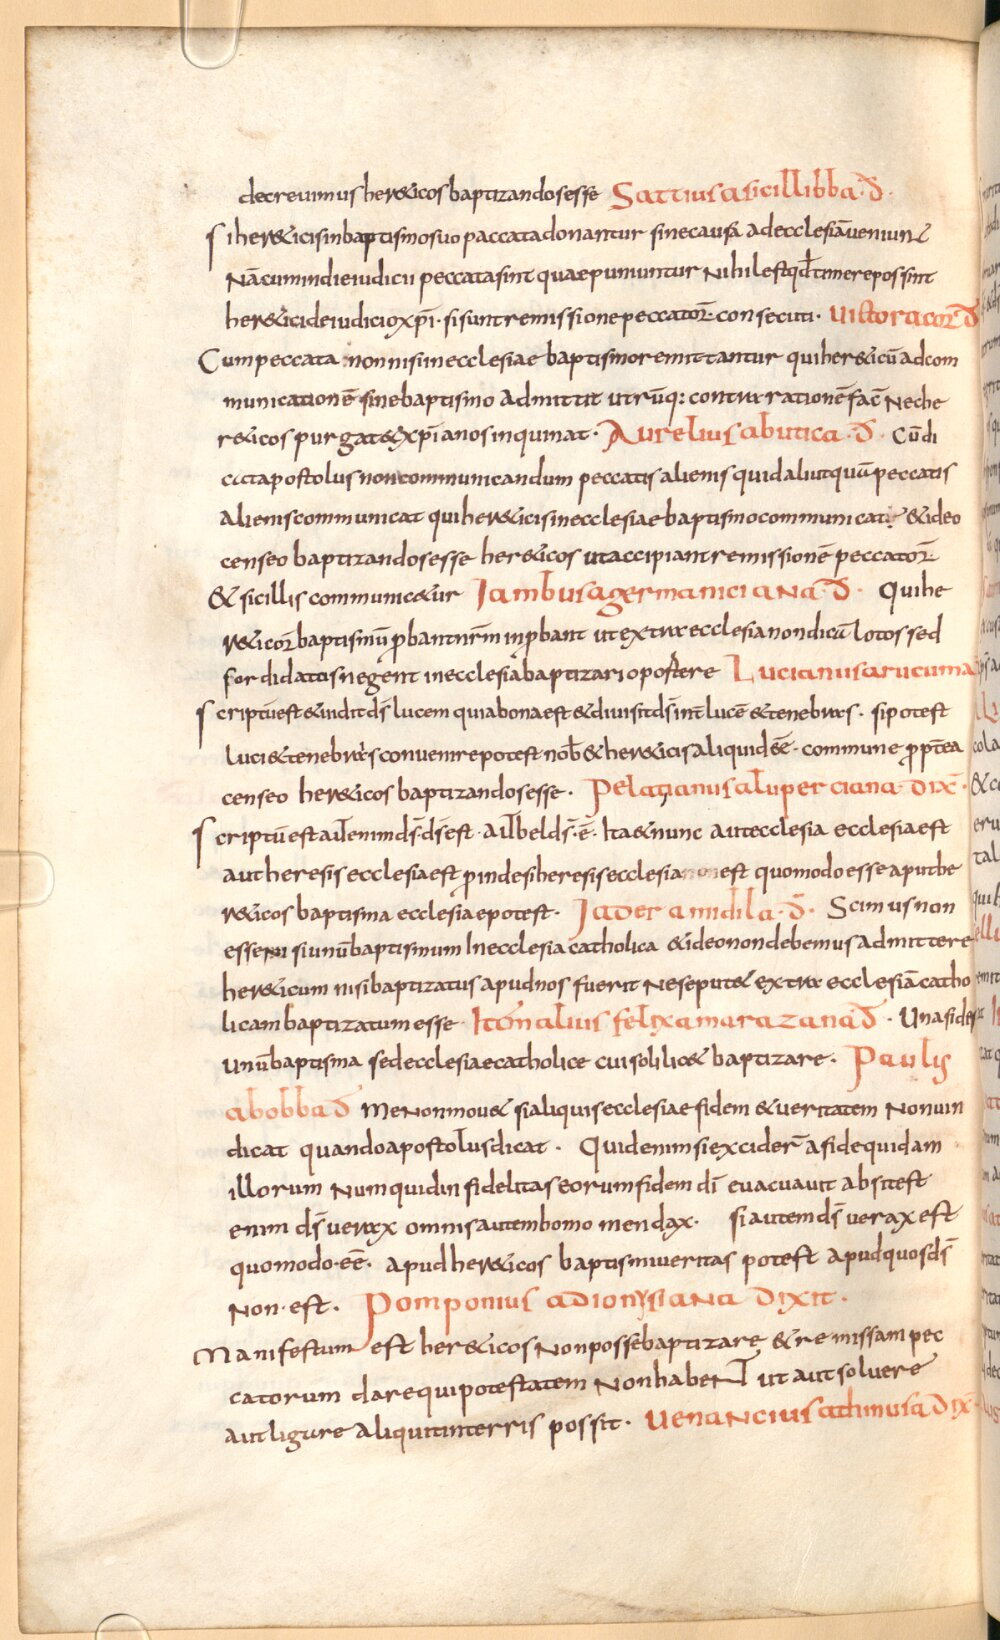 decreuimus her&icos baptizandos esse Sattius a sicillibba · đ ·
Si her&icis in baptismo suo paccata donantur sine causa ad ecclesiā ueniunt
Nā cum in die iudicii peccata sint quae puniuntur Nihil est qđ timere possint
her&ici de iudicio xpī · si sunt remissione peccatoꝝ · consecuti · uictor a cor đ
Cum peccata non nisi in ecclesiae baptismo remittantur qui her&icū ad com
municationē sine baptismo admittit utrūq: contra rationē fac̄ Ne che
r&icos purgat & xp̄ianos inquinat · Aurelius abutica · đ · Cū di
cat apostolus non communicandum peccatis alienis quid aliut quā peccatis
alienis communicat qui her&icis in ecclesiae baptismo communicat & ideo
censeo baptizandos esse her&icos ut accipiant remissionē peccatoꝝ
& sic illis communic&ur Iambus a germaniciana · đ · Qui he
r&icoꝝ baptismū ꝓbant nr̄m inꝓbant ut extra ecclesia non dicā lotos sed
fordidatis negent in ecclesiā baptizari oportere Lucianus a rucuma
Scriptū est & uidit ds̄ lucem quia bona est & diuisit ds̄ int̄ lucē & tenebras · si potest
luci & tenebris conuenire potest nob̄ & her&icis aliquid eē · commune ꝓpt̄ea
censeo her&icos baptizandos esse · Pelagianus a luperciana dix̄ ·
Scriptū est aut̄ enim ds̄ · ds̄ est · aut̄ bel ds̄ · ē · Ita & nunc aut ecclesia ecclesia est
aut heresis ecclesia est ꝓinde si heresis ecclesia non est quomodo esse aput he
r&icos baptisma ecclesiae potest · Iader a midila · đ · Scimus non
esse nisi unū baptismum In ecclesia catholica & ideo non debemus admittere
her&icum nisi baptizatus apud nos fuerit Ne se put& extra ecclesiā catho
licam baptizatum esse · Itē natius felix a marazana đ · Una fides
unū baptisma sed ecclesiae catholice cui soli lic& baptizare · Paulus
abobba đ Me Non mou& si aliquis ecclesiae fidem & ueritatem Non uin
dicat quando apostolus dicat · Quid enim si exciderr̄ a fide quidam
illorum Numquid infidelitas eorum fidem dī euacuauit absit est
enim ds̄ uerax omnis autem homo mendax · si autem ds̄ uerax est
quomodo · eē · apud her&icos baptismi ueritas potest apud quos ds̄
Non · est · Pomponius a dionysiana dixit ·
Manifestum est her&icos Non posse baptizare & remissam pec
catorum dare qui potestatem Non habeNT ut aut soluere
aut ligare aliquit in terris possit · uenancius a thinusa dix̄